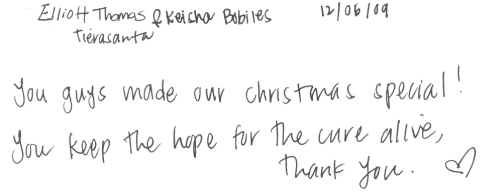 Elliott Thomas & Keicha Bobiles 12/06/09
Tierasanta
You guys made our christmas special!
You keep the hope for the cure alive,
Thank you.